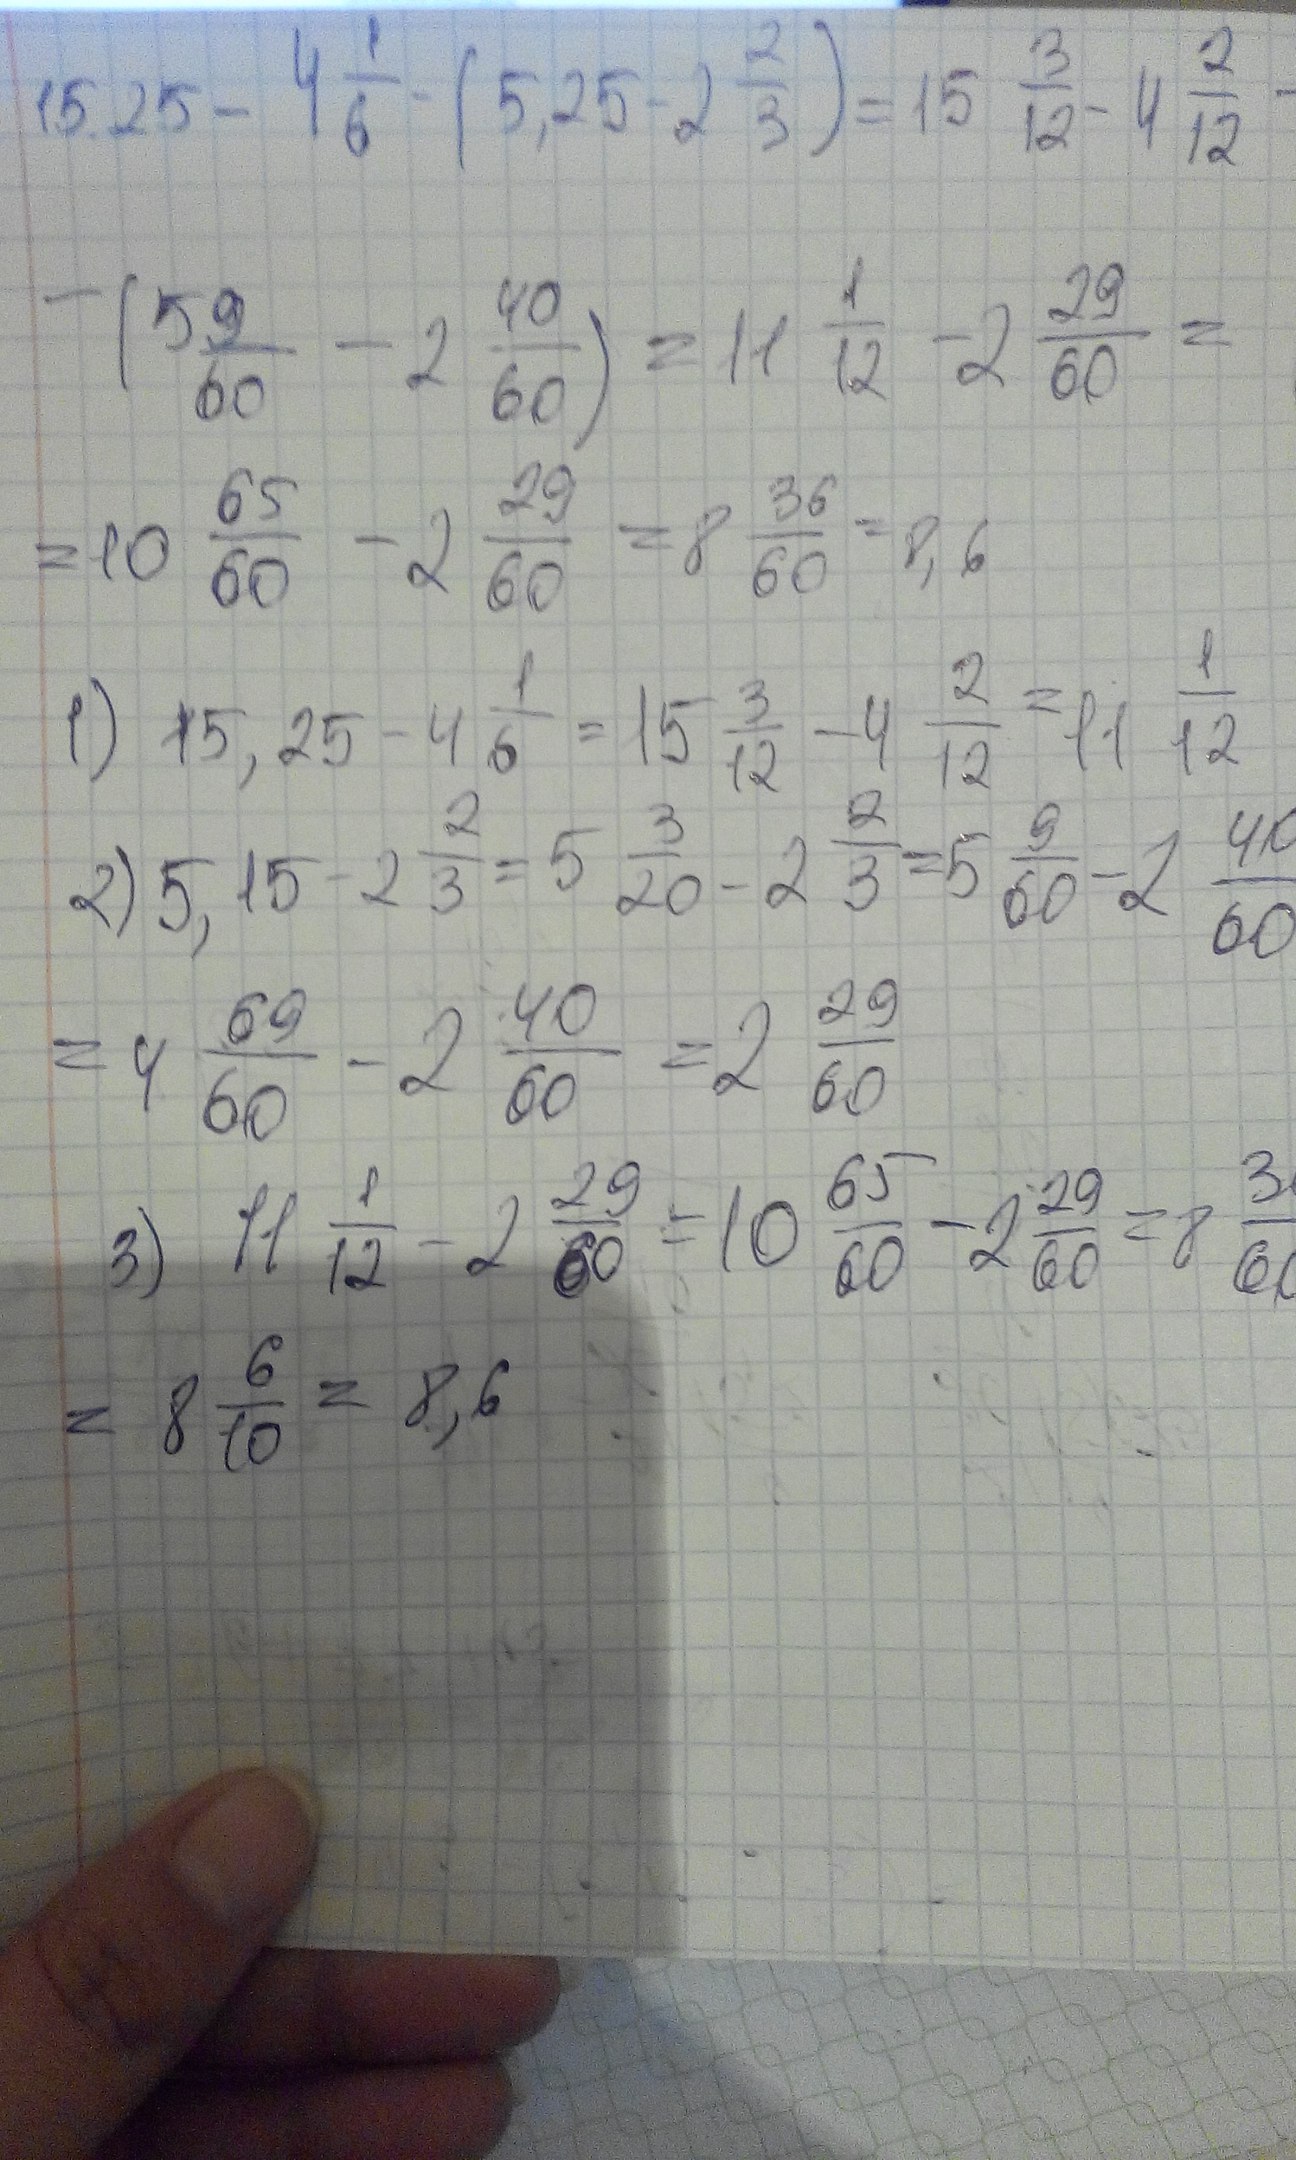 15.25 - 4 1/6 - (5,25 - 2 2/3) = 15 3/12 - 4 2/12 -
- (5 9/60 - 2 40/60) = 11 1/12 - 2 29/60 =
= 10 65/60 - 2 29/60 = 8 36/60 = 8,6
1) 15,25 - 4 1/6 = 15 3/12 - 4 2/12 = 11 1/12
2) 5,15 - 2 2/3 = 5 3/20 - 2 2/3 = 5 9/60 - 2 40/60
= 4 69/60 - 2 40/60 = 2 29/60
3) 11 1/12 - 2 29/60 = 10 65/60 - 2 29/60 = 8 36/60
= 8 6/10 = 8,6